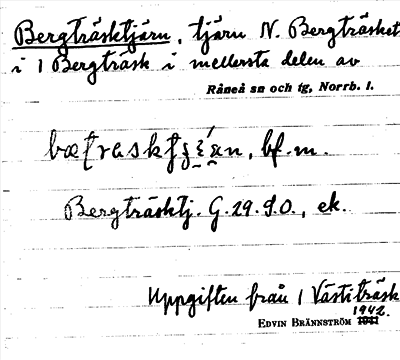 Bergträsktjärn, tjärn N. Bergträsket
i 1 Bergträsk i mellersta delen av
Råneå sn och tg, Norrb. l.
bf. m.
Bergträsktj. G. 29. S.O., ek.
Uppgiften från 1 Västiträsk
1942.
EDVIN BRÄNNSTRÖM 1941